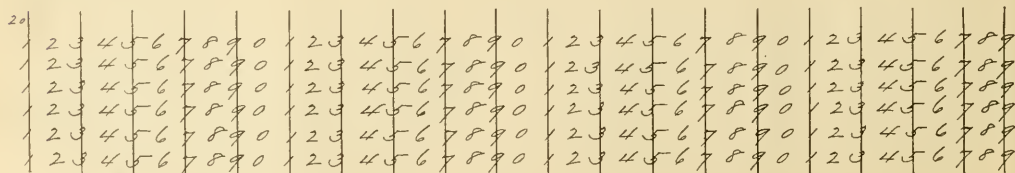 20
1 2 3 4 5 6 7 8 9 0 1 2 3 4 5 6 7 8 9 0 1 2 3 4 5 6 7 8 9 0 1 2 3 4 5 6 7 8 9
1 2 3 4 5 6 7 8 9 0 1 2 3 4 5 6 7 8 9 0 1 2 3 4 5 6 7 8 9 0 1 2 3 4 5 6 7 8 9
1 2 3 4 5 6 7 8 9 0 1 2 3 4 5 6 7 8 9 0 1 2 3 4 5 6 7 8 9 0 1 2 3 4 5 6 7 8 9
1 2 3 4 5 6 7 8 9 0 1 2 3 4 5 6 7 8 9 0 1 2 3 4 5 6 7 8 9 0 1 2 3 4 5 6 7 8 9
1 2 3 4 5 6 7 8 9 0 1 2 3 4 5 6 7 8 9 0 1 2 3 4 5 6 7 8 9 0 1 2 3 4 5 6 7 8 9
1 2 3 4 5 6 7 8 9 0 1 2 3 4 5 6 7 8 9 0 1 2 3 4 5 6 7 8 9 0 1 2 3 4 5 6 7 8 9